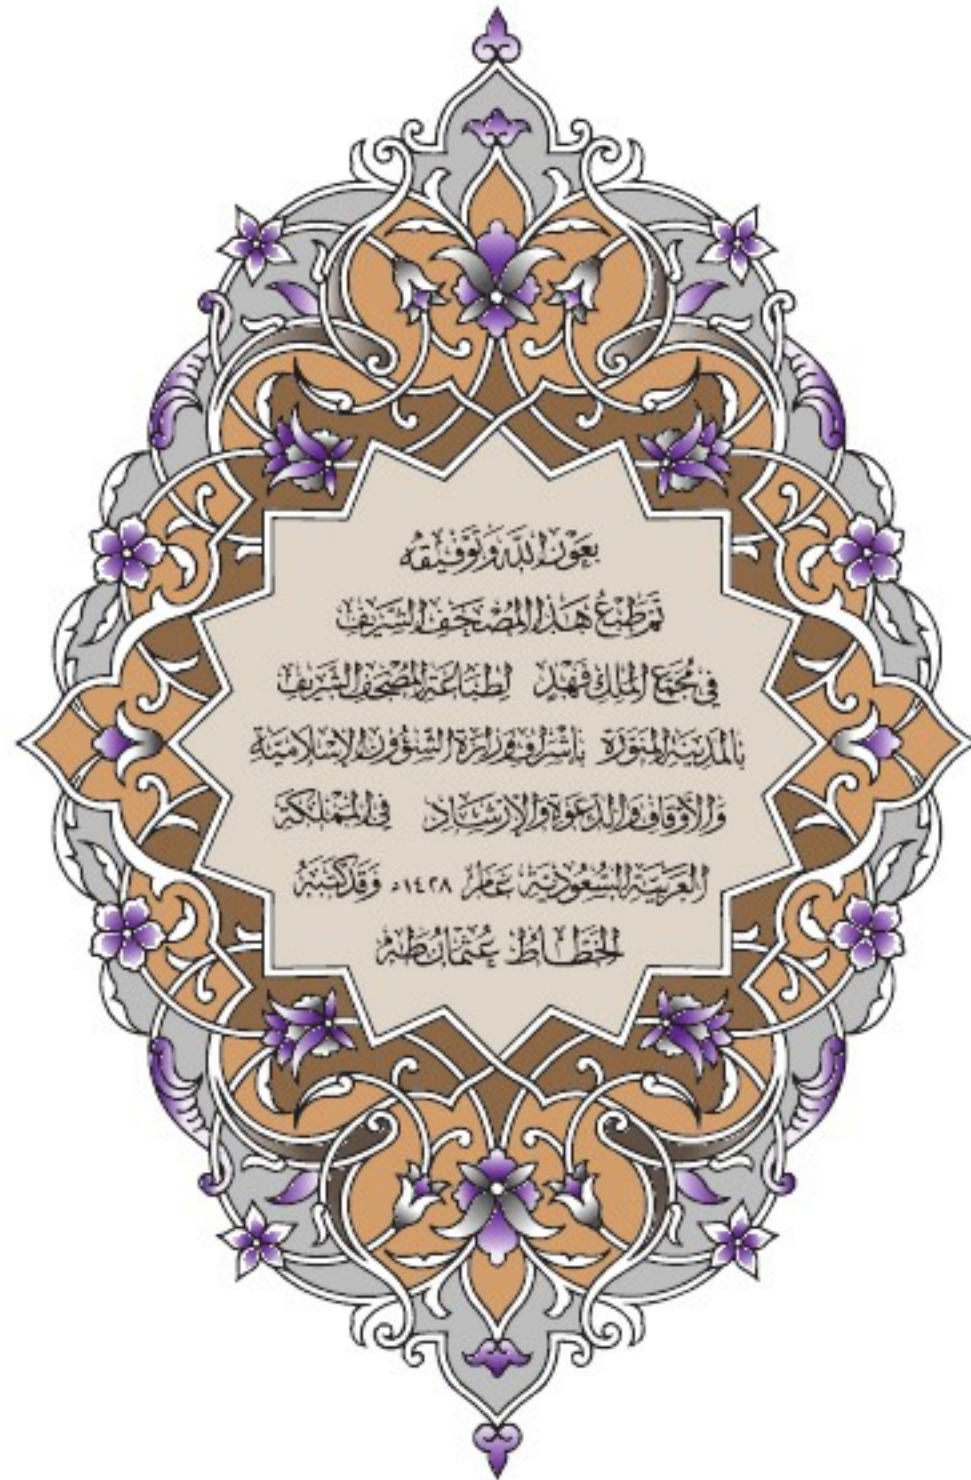 بِعَوْنِ اللَّهِ وَتَوْفِيقِهِ
تَمَّ طَبْعُ هَذَا الْمُصْحَفِ الشَّرِيفِ
فِي مُجَمَّعِ الْمَلِكِ فَهْد لِطِبَاعَةِ الْمُصْحَفِ الشَّرِيفِ
بِالْمَدِينَةِ الْمُنَوَّرَةِ بِإِشْرَافِ وِزَارَةِ الشُّؤُونِ الْإِسْلَامِيَّةِ
وَالْأَوْقَافِ وَالدَّعْوَةِ وَالْإِرْشَادِ فِي الْمَمْلَكَةِ
الْعَرَبِيَّةِ السُّعُودِيَّةِ عَامَ ١٤٢٨ه وَقَدْ كَتَبَهُ
الْخَطَّاطُ عُثْمَانُ طه